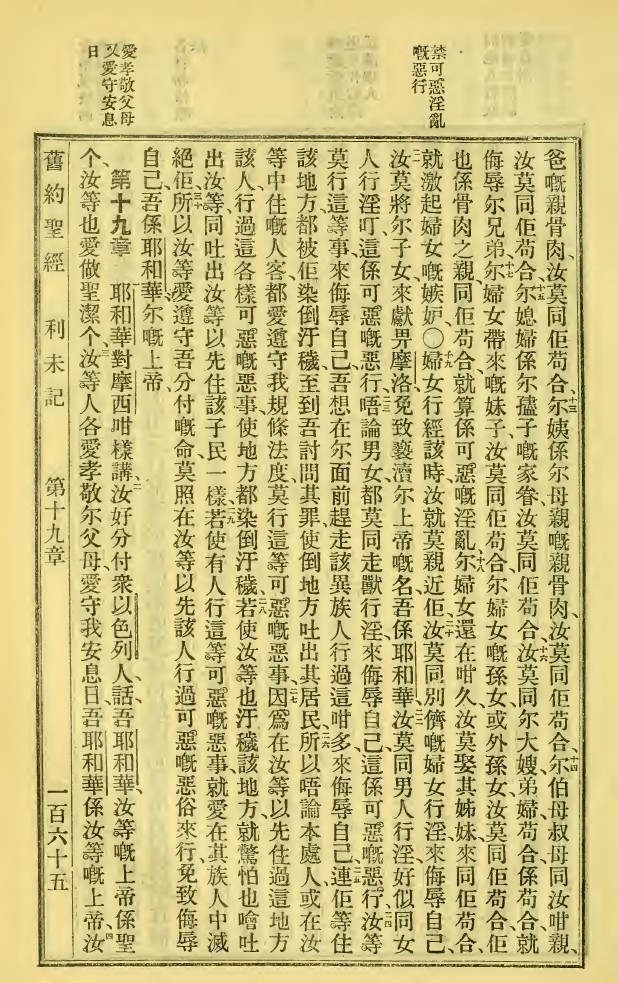 禁可惡淫亂
嘅惡行
爸嘅親骨肉、汝莫同佢苟合、十三尔姨係尔母親嘅親骨肉、汝莫同佢苟合、十四尔伯母叔母同汝咁親、
汝莫同佢苟合、十五尔媳婦係尔孻子嘅家眷、汝莫同佢苟合、十六汝莫同尔大嫂弟婦苟合、係苟合、就
侮辱尔兄弟、十七尔婦女帶來嘅妹子、汝莫同佢苟合、尔婦女嘅孫女、或外孫女、汝莫同佢苟合、佢
也係骨肉之親、同佢苟合、就算係可惡嘅淫亂、十八尔婦女還在咁久、汝莫娶其姊妹來同佢苟合、
就激起婦女嘅嫉妒、〇十九婦女行經該時、汝就莫親近佢、二十汝莫同別儕嘅婦女行淫、來侮辱自己、
二一汝莫將尔子女、來獻畀摩洛、免致褻瀆尔上帝嘅名、吾係耶和華、二二汝莫同男人行淫、好似同女
人行淫、叮這係可惡嘅惡行、二三唔論男女、都莫同走獸行淫、來侮辱自己、這係可惡嘅惡行、二四汝等
莫行這等事來侮辱自己、吾想在尔面前趕走該異族人、行過這咁多來侮辱自己、二五連佢等住
該地方、都被佢染倒汙穢、至到吾討問其罪、使倒地方吐出其居民、二六所以唔論本處人、或在汝
等中住嘅人客、都愛遵守我規條法度、莫行這等可惡嘅惡事、二七因爲在汝等以先住過這地方
該人、行過這各樣可惡嘅惡事、使地方都染倒汙穢、二八若使汝等也汙穢該地方、就驚怕也噲吐
出汝等、同吐出汝等以先住該子民一樣、二九若使有人行這等可惡嘅惡事、就愛在其族人中滅
絕佢、三十所以汝等愛遵守吾分付嘅命、莫照在汝等以先該人、行過可惡嘅惡俗來行、免致侮辱
自己、吾係耶和華尔嘅上帝、
第十九章 耶和華對摩西咁樣講、二汝好分付衆以色列人話、吾耶和華、汝等嘅上帝係聖
个、汝等也愛做聖潔个、三汝等人各愛孝敬尔父母、愛守我安息日、吾耶和華係汝等嘅上帝、四汝
愛孝敬父母
又愛守安息
日
舊約聖經 利未記 第十九章 一百六十五